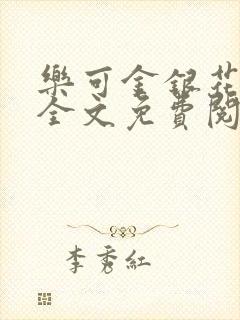 樂可金銀花
全文免費閱
李秀紅